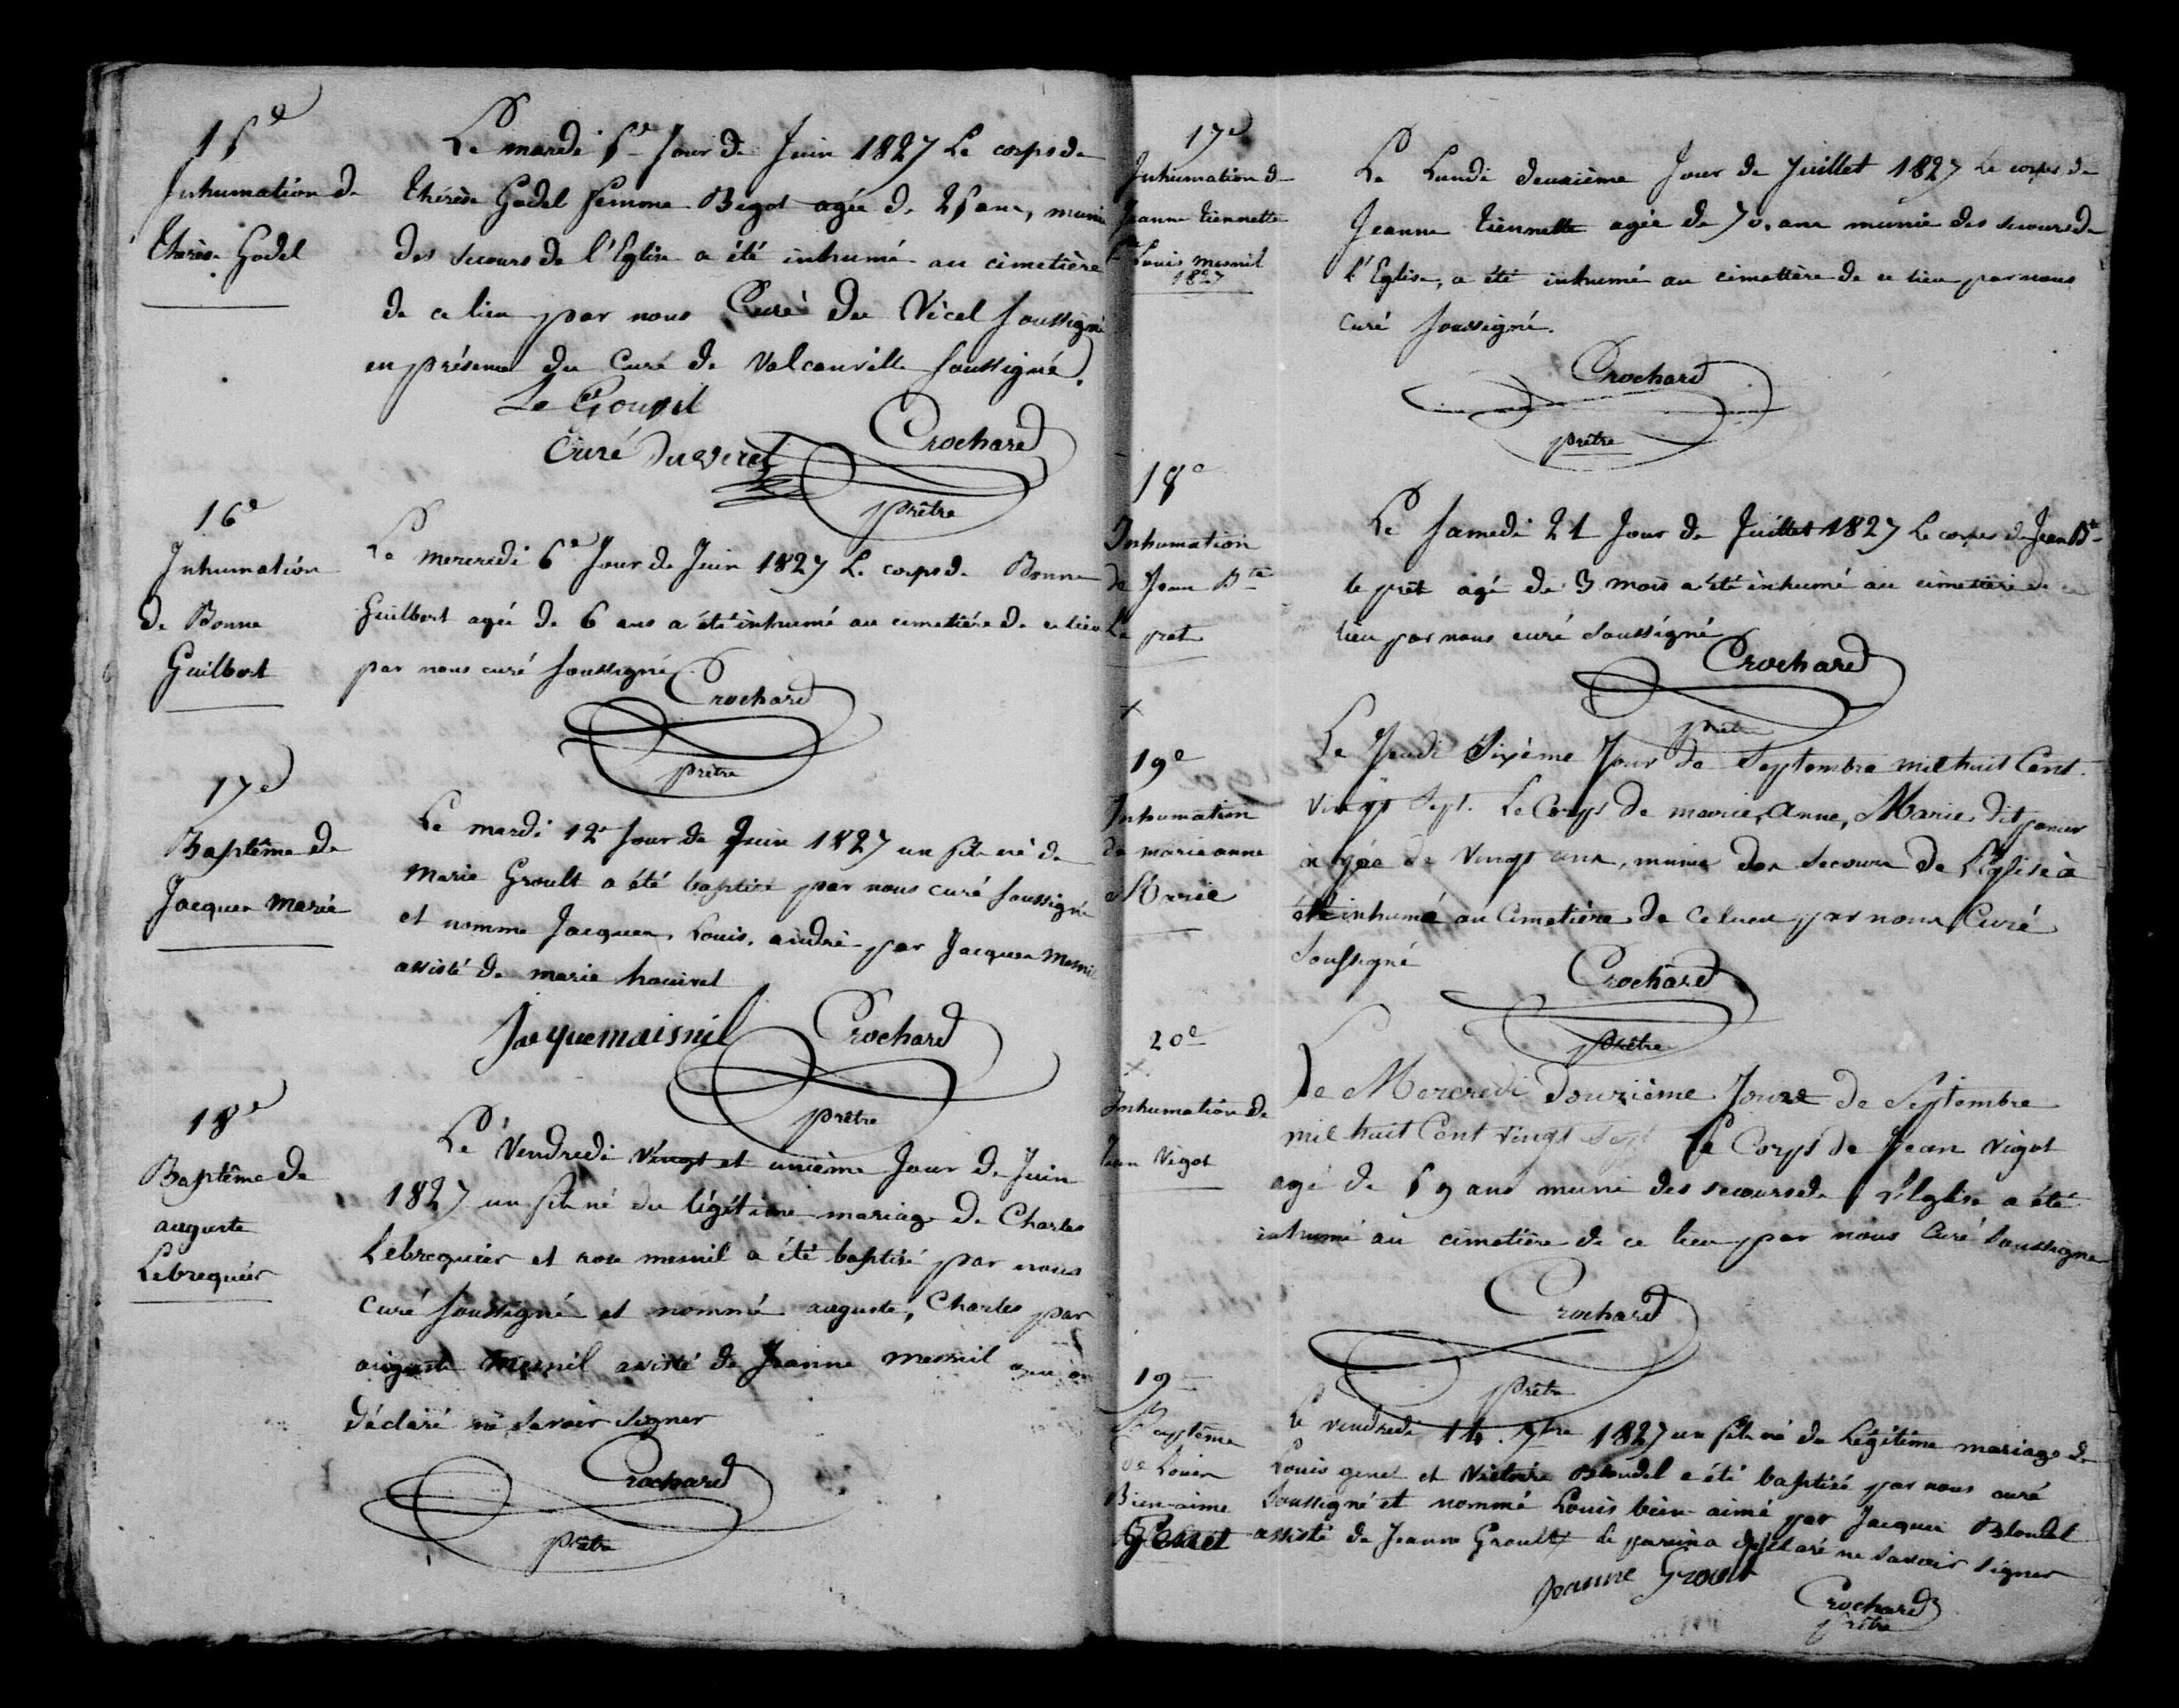 15e
Inhumation de
thérèse Godel
Le mardi 5e Jour de Juin 1827 Le corps de
thérèse Godel femme Begot agée de 25 ans, munie
des secours de l'Eglise a été inhumé au cimetière
de ce lieu par nous Curé du Vicel soussigné
en présence du Curé de valcanville soussigné.
Le Goupil
Curé du vicel
Crochard
prêtre
16e
Inhumation
de Bonne
Guilbert
Le mercredi 6e Jour de Juin 1827 Le corps de Bonne
Guilbert agée de 6 ans a été inhumé au cimetière de ce lieu
par nous curé soussigné
Crochard
prêtre
17e
Baptême de
Jacques marie
Le mardi 12e Jour de Juin 1827 un fils né de
marie Groult a été baptisé par nous curé soussigné
et nommé Jacques, Louis, andré par Jacques Mesnil
assisté de marie houivet
Jacque maisnil
Crochard
prêtre
18e
Baptême de
auguste
Lebrequier
Le Vendredi vingt et unième Jour de Juin
1827 un fils né du légitime mariage de Charles
Lebrequier et rose mesnil a été baptisé par nous
curé soussigné et nommé auguste, Charles par
auguste Mesnil assisté de Jeanne mesnil qui on
déclaré ne savoir signer
Crochard
prêtre
17e
Inhumation de
Jeanne tiennette
Louis mesnil
1827
Le Lundi deuxième Jour de Juillet 1827 Le corps de
Jeanne tiennette agée de 70. ans munie des secours de
l'Eglise, a été inhumé au cimetière de ce lieu par nous
curé soussigné.
Crochard
prêtre
18e
Inhumation
de Jean Bte
Le prêt
Le Samedi 21 Jour de Juillet 1827 Le corps de Jean Bte
le prêt agé de 3 mois a été inhumé au cimetière de ce
lieu par nous curé soussigné
Crochard
prêtre
19e
Inhumation
de marie anne
Marie
Le Jeudi Sixème Jour de Septembre mil huit Cent
vingt Sept. Le Corps de marie, Anne, Marie dit
agée de vingt ans, munie des Secours de L'Eglise à
été inhumé au Cimetière de Ce lieu par nous Curé
Soussigné
Crochard
prêtre
20e
Inhumation de
Jean Vigot
Le Mercredi Douzième Jour de Septembre
mil huit Cent vingt Sept Le Corps de Jean Vigot
agé de 59 ans muni des secours de L'Eglise a été
inhumé au cimetière de ce lieu par nous Curé Soussigné
Crochard
prêtre
19e
Baptême
de Louis
Bien-aimé
Genet
Le vendredi 14. 7bre 1827 un fils né du Légitime mariage de
Louis genet et Victoire Blondel a été baptisé par nous curé
Soussigné et nommé Louis bien-aimé par Jacques Blondel
assisté de Jeanne Groult le parain a déclaré ne savoir signer
Jeanne Groult
Crochard
prêtre